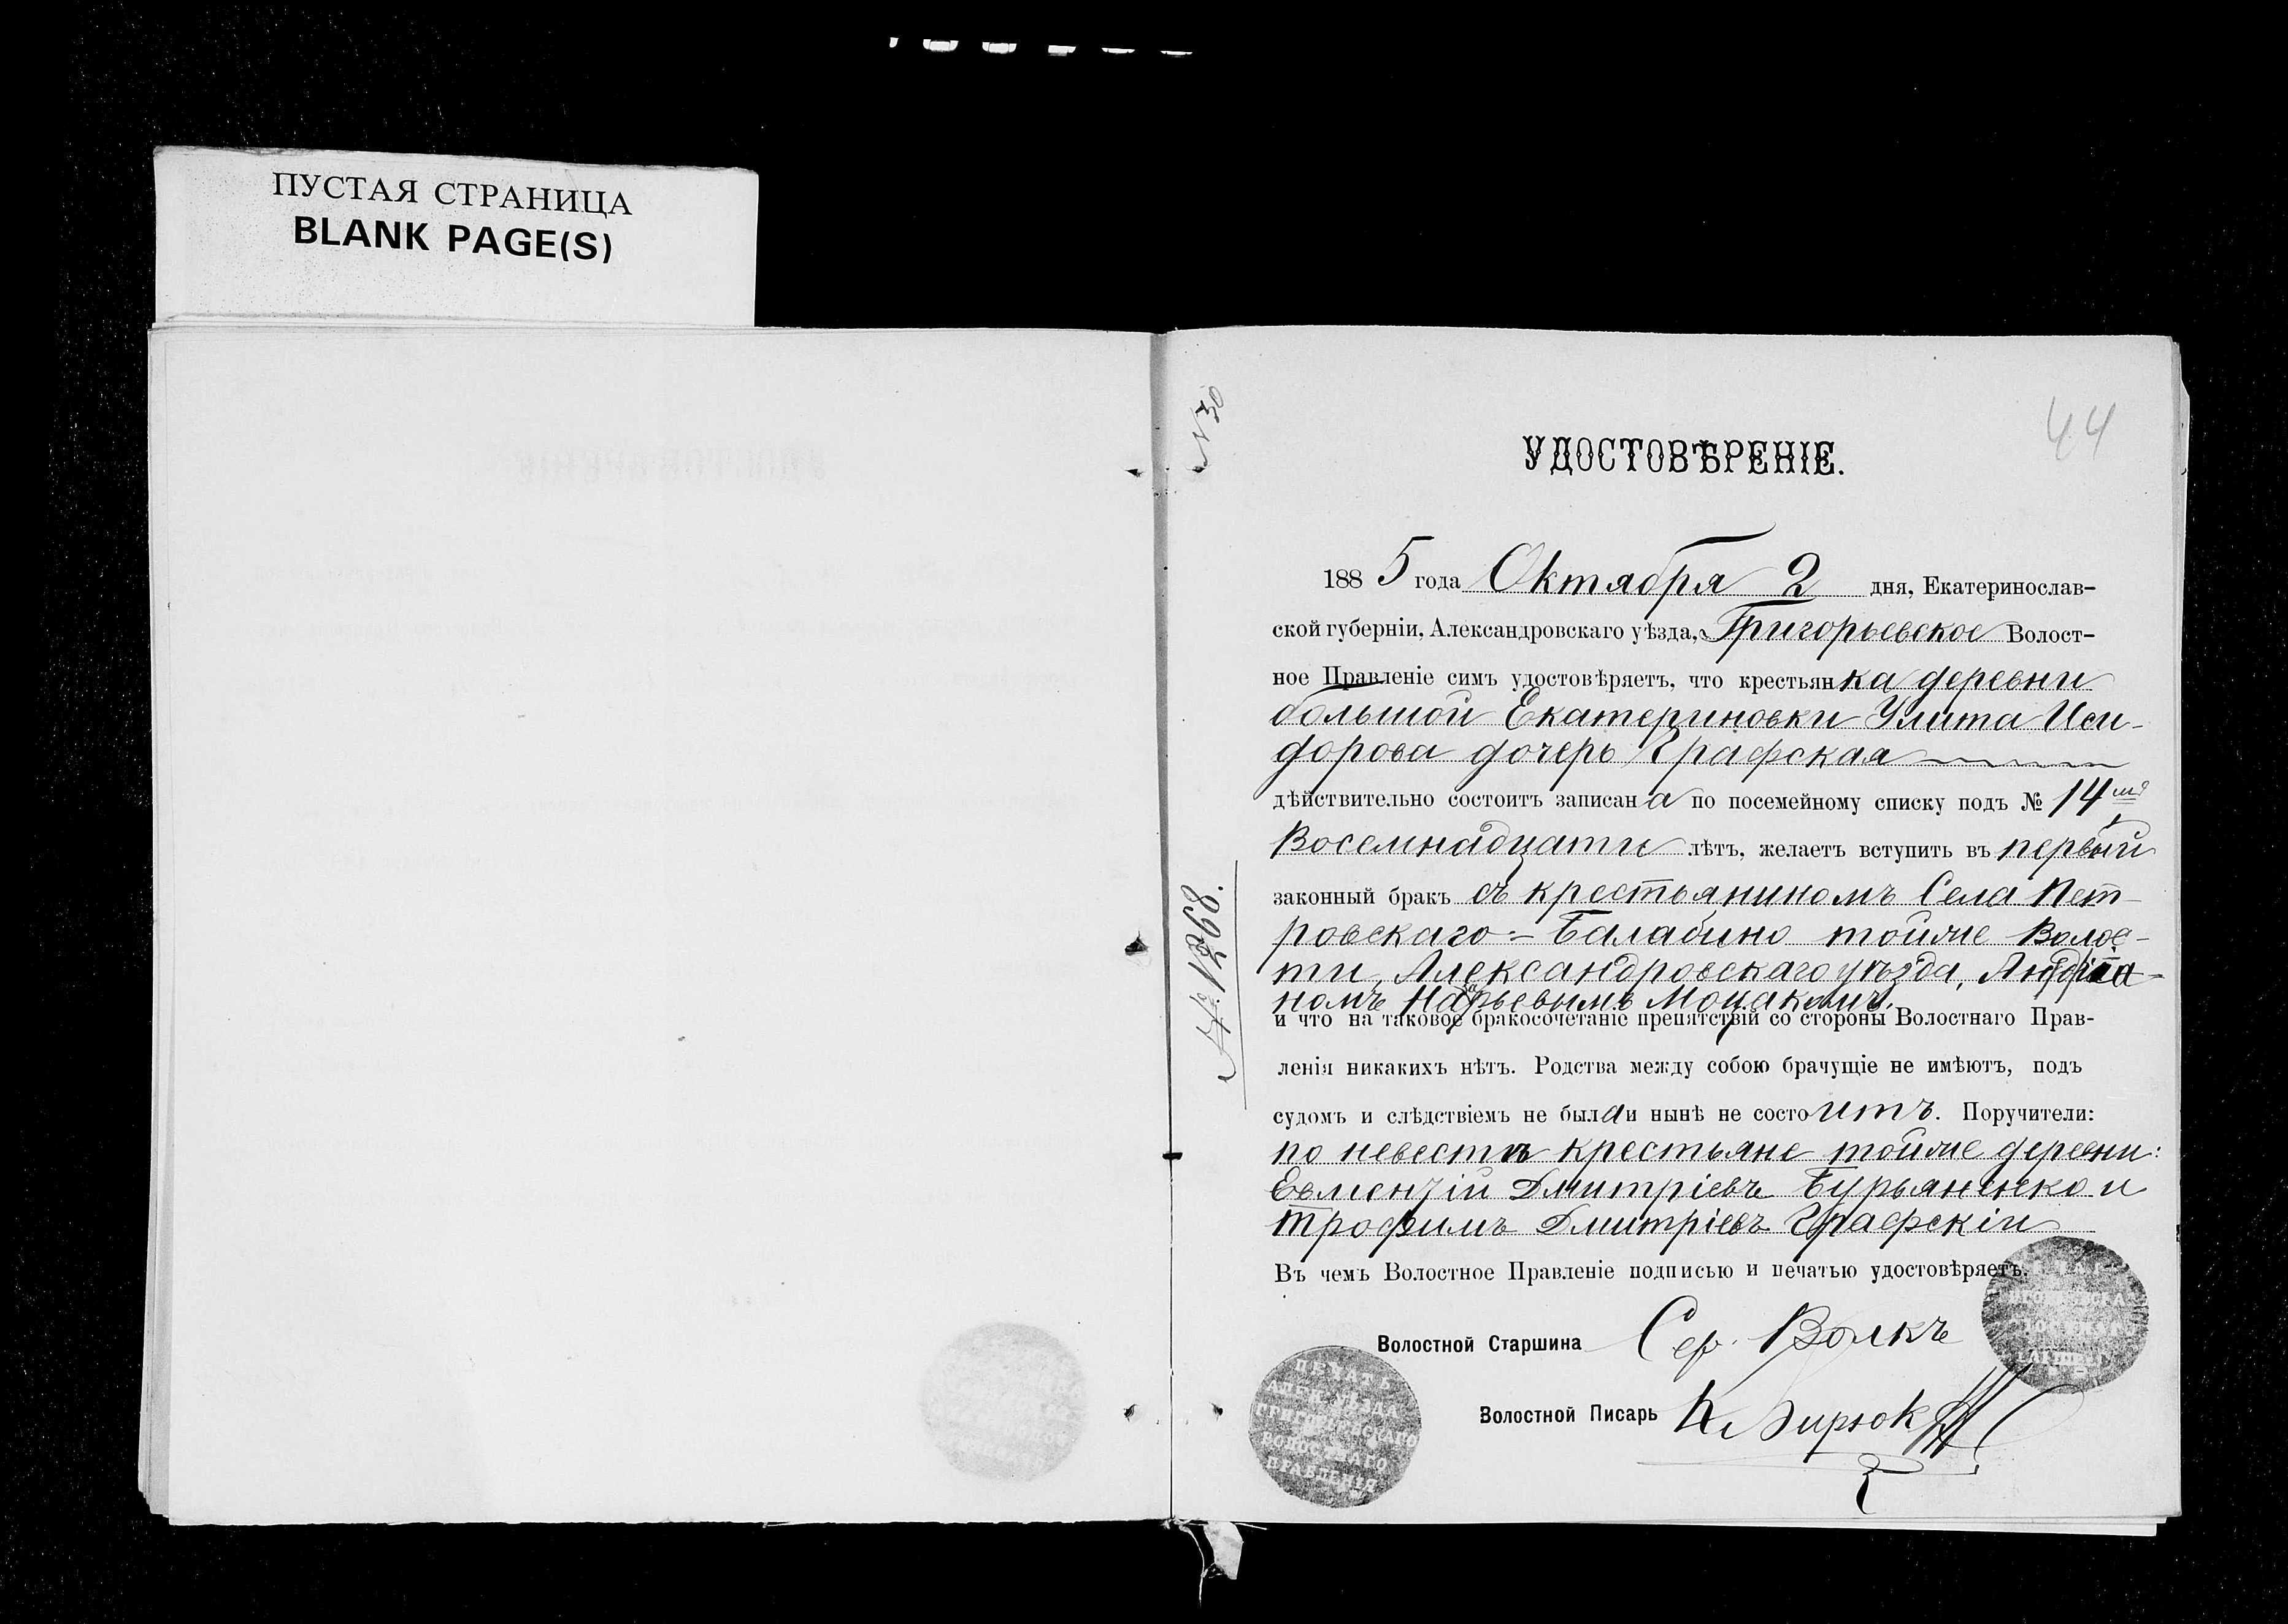 ПУСТАЯ СТРАНИЦА
BLANK PAGE(S)
№ 30
44
УДОСТОВѢРЕНІЕ.
1885 года Октября 2 дня, Екатеринослав-
ской губерніи, Александровскаго уѣзда, Григорьевское Волост-
ное Правленіе симъ удостовѣряетъ, что крестьянка деревни
большой Екатериновки Улита Иси-
дорова дочерь Графская
дѣйствительно состоитъ записана по посемейному списку подъ № 14
Восемнадцати лѣтъ, желаетъ вступить въ первый
законный бракъ съ крестьяниномъ Села Пет-
ровскаго - Балабино тойже Волос-
ти, Александровскаго уѣзда,
номъ Моцакомъ,
и что на таковое бракосочетаніе препятствій со стороны Волостнаго Прав-
ленія никакихъ нѣтъ. Родства между собою брачущіе не имѣютъ, подъ
судомъ и слѣдствіемъ не была и нынѣ не состоитъ. Поручители:
по невестѣ крестьяне тойже деревни:
Евменій Дмитріевъ Бурьяненко и
Трофимъ Дмитріевъ Графскій
Въ чемъ Волостное Правленіе подписью и печатью удостовѣряетъ.
Волостной Старшина Сер. Волкъ
Волостной Писарь К. Бирюк
№ 1268.
ПЕЧАТЬ
АЛЕК. УѢЗДА
ГРИГОРЬЕВСКАГО
ВОЛОСТНАГО
ПРАВЛЕНІЯ